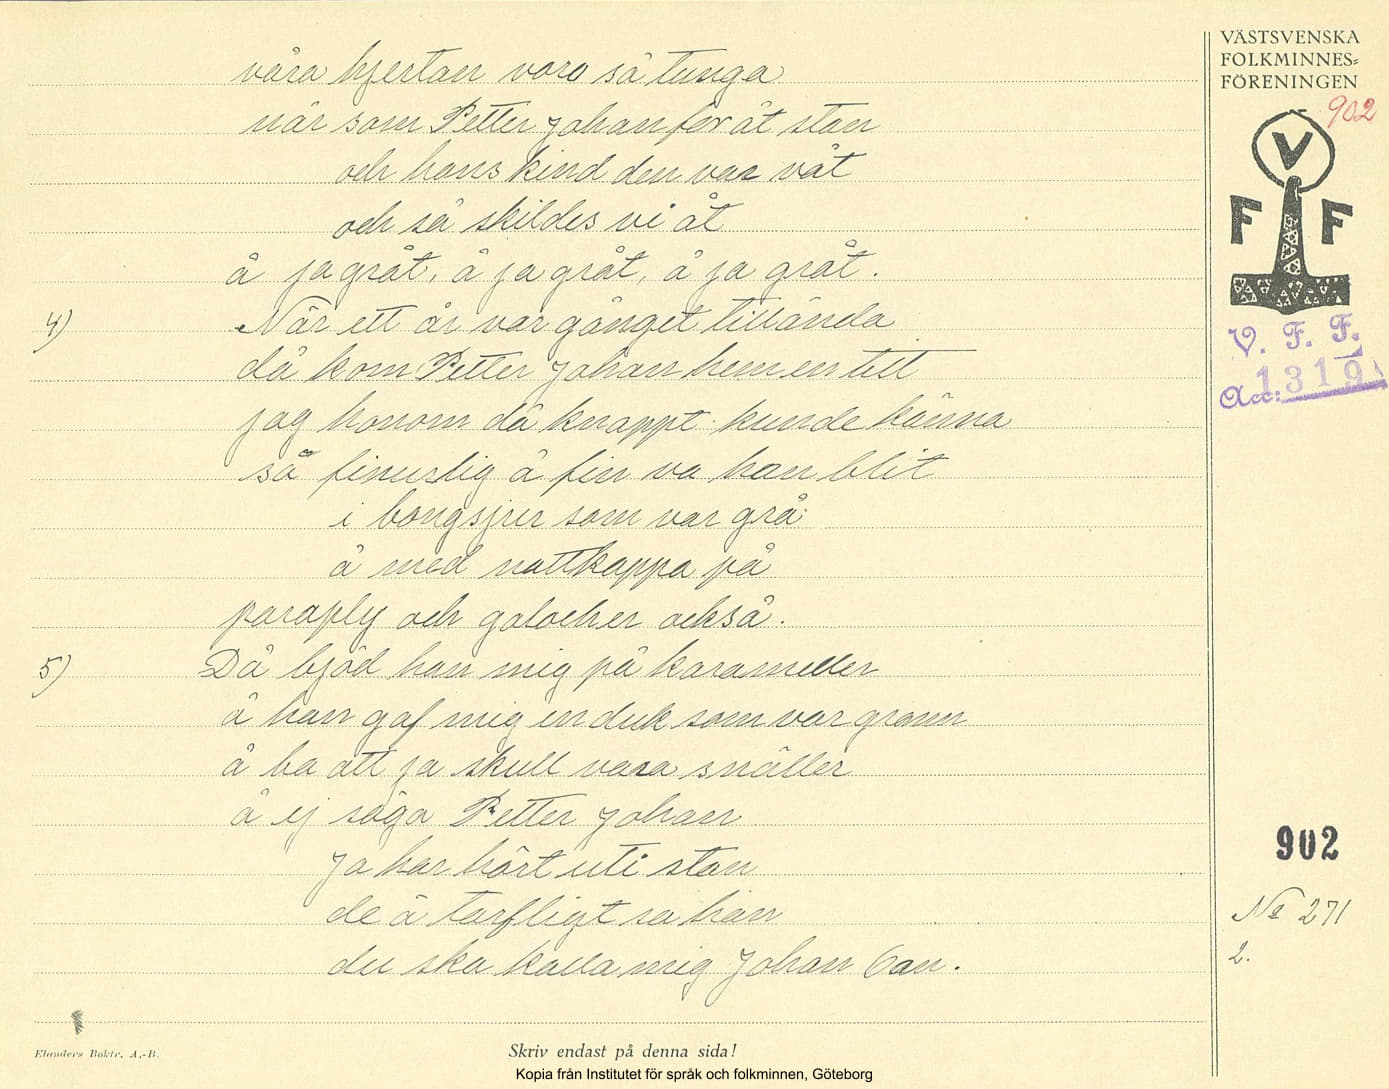 våra hjertan voro så tunga
när som Petter Johan for åt stan
och hans kind den var våt
och så skildes vi åt
å ja gråt, å ja gråt, å ja gråt.
4) När ett år var gånget tillända
då kom Petter Johan hem en titt
jag honom då knappt kunde känna
så finurlig å fin va han blit
i bongsjur som var grå
å med nattkappa på
paraply och galocher också.
5) Då bjöd han mig på karameller
å han gaf mig en duk som var grann
å ba att ja skull vara snäller
å ej säga Petter Johan
Ja har hört uti stan
de ä tarfligt sa han
du ska kalla mig Johan
VÄSTSVENSKA
FOLKMINNES=
FÖRENINGEN
902
V
F F
V. F. F.
Acc: 1319
902
No 271
2.
Elanders Boktr. A.-B.
Skriv endast på denna sida!
Kopia från Institutet för språk och folkminnen, Göteborg